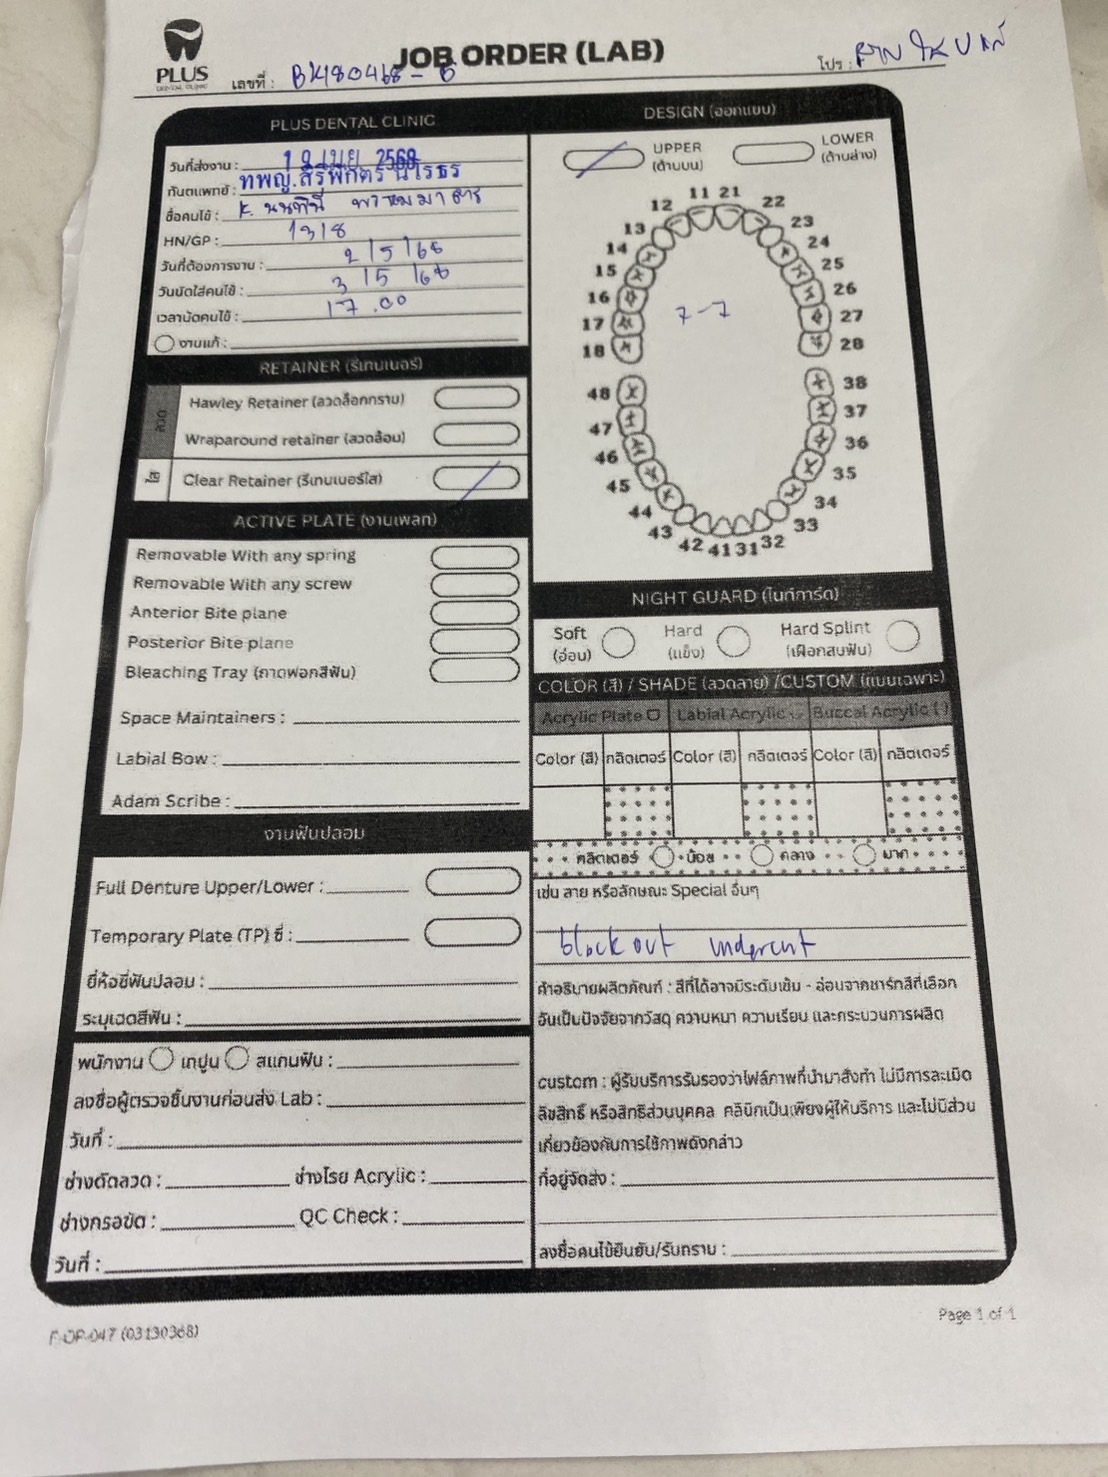 PLUS
DENTAL CLINIC
JOB ORDER (LAB)
เลขที่ : BK180468-6
โปร :
PLUS DENTAL CLINIC
วันที่ส่งงาน : 19 เมย 2568
ทันตแพทย์ : ทพญ.
ชื่อคนไข้ : K. นนทินี
HN/GP : 1318
วันที่ต้องการงาน : 2/5/68
วันนัดใส่คนไข้ : 3/5/68
เวลานัดคนไข้ : 17.00
งานแก้ :
RETAINER (รีเทนเนอร์)
ลวด
Hawley Retainer (ลวดล็อกกราม)
Wraparound retainer (ลวดล้อม)
ใส
Clear Retainer (รีเทนเนอร์ใส)
ACTIVE PLATE (งานเพลท)
Removable With any spring
Removable With any screw
Anterior Bite plane
Posterior Bite plane
Bleaching Tray (ถาดฟอกสีฟัน)
Space Maintainers :
Labial Bow :
Adam Scribe :
งานฟันปลอม
Full Denture Upper/Lower :
Temporary Plate (TP) ซี่ :
ยี่ห้อซี่ฟันปลอม :
ระบุเฉดสีฟัน :
พนักงาน เทปูน สแกนฟัน :
ลงชื่อผู้ตรวจชิ้นงานก่อนส่ง Lab :
วันที่ :
ช่างดัดลวด : ช่างโรย Acrylic :
ช่างกรอขัด : QC Check :
วันที่ :
DESIGN (ออกแบบ)
UPPER (ด้านบน)
LOWER (ด้านล่าง)
11 21
12 22
13 23
14 24
15 25
16 26
17 27
18 28
7-7
48 38
47 37
46 36
45 35
44 34
43 33
42 41 31 32
NIGHT GUARD (ไนท์การ์ด)
Soft (อ่อน)
Hard (แข็ง)
Hard Splint (เฝือกสบฟัน)
COLOR (สี) / SHADE (ลวดลาย) /CUSTOM (แบบเฉพาะ)
Acrylic Plate Labial Acrylic Buccal Acrylic ( )
Color (สี) กลิตเตอร์ Color (สี) กลิตเตอร์ Color (สี) กลิตเตอร์
กลิตเตอร์ น้อย กลาง มาก
เช่น ลาย หรือลักษณะ Special อื่นๆ
block out undercut
คำอธิบายผลิตภัณฑ์ : สีที่ได้อาจมีระดับเข้ม - อ่อนจากชาร์ทสีที่เลือก
อันเป็นปัจจัยจากวัสดุ ความหนา ความเรียบ และกระบวนการผลิต
custom : ผู้รับบริการรับรองว่าไฟล์ภาพที่นำมาสั่งทำ ไม่มีการละเมิด
ลิขสิทธิ์ หรือสิทธิส่วนบุคคล คลินิกเป็นเพียงผู้ให้บริการ และไม่มีส่วน
เกี่ยวข้องกับการใช้ภาพดังกล่าว
ที่อยู่จัดส่ง :
ลงชื่อคนไข้ยืนยัน/รับทราบ :
Page 1 of 1
F-OP-047 (03130368)